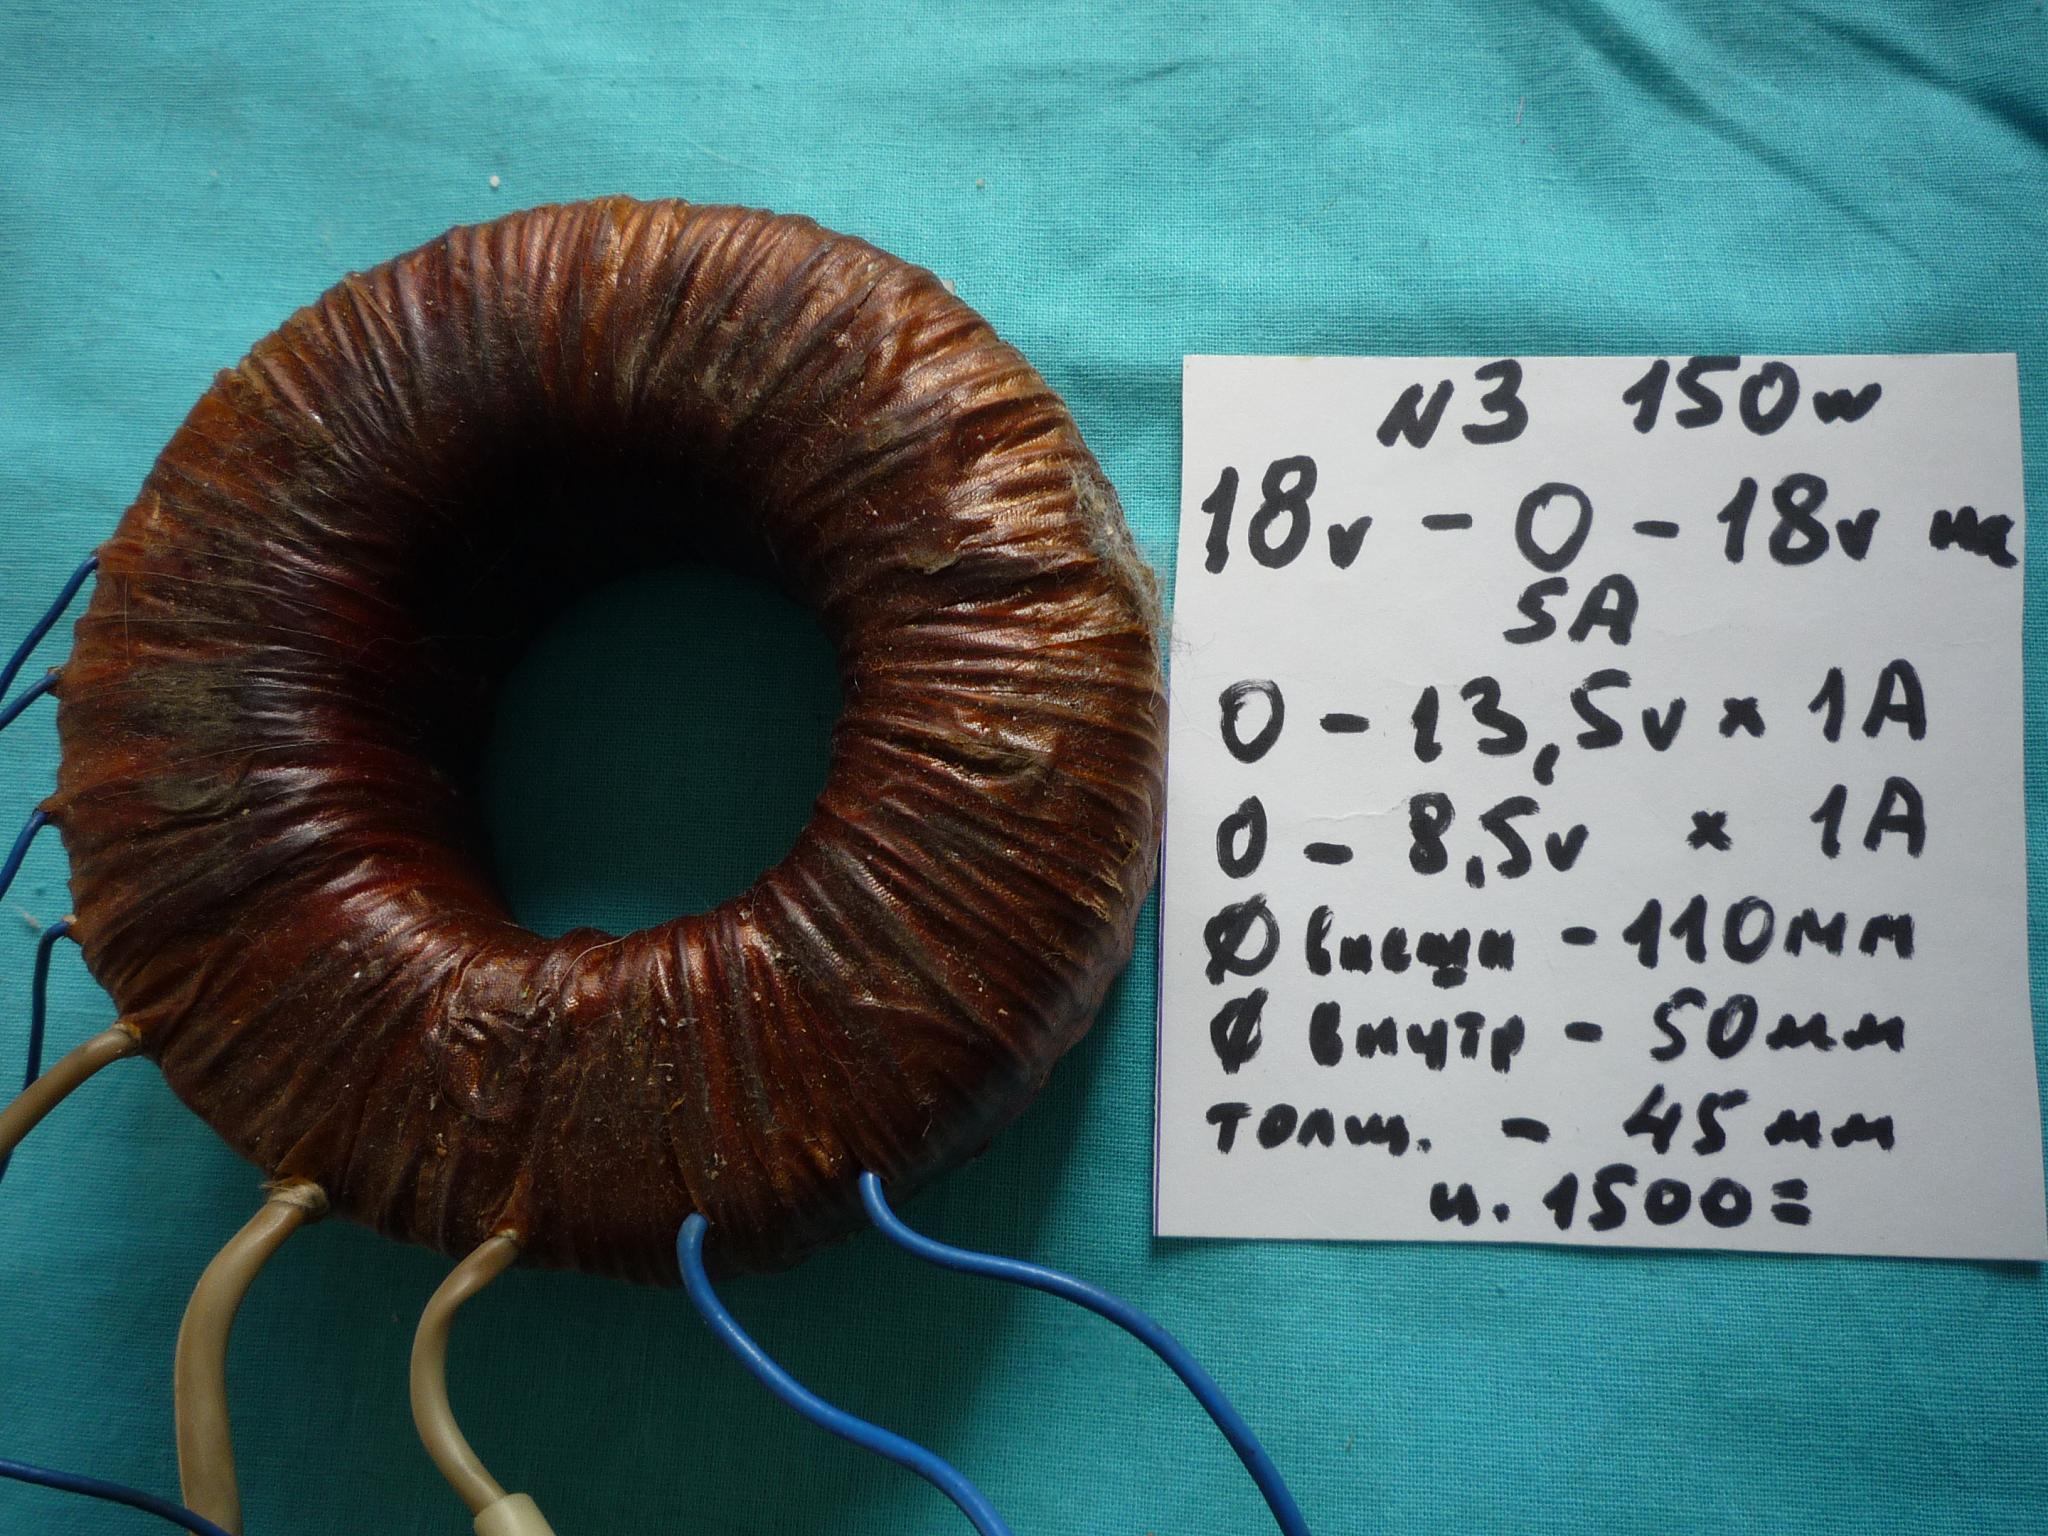 N3 150w
18v - 0 - 18v на
5A
0 - 13,5v x 1A
0 - 8,5v x 1A
Ø внешн - 110мм
Ø внутр - 50мм
толщ. - 45мм
ц. 1500=